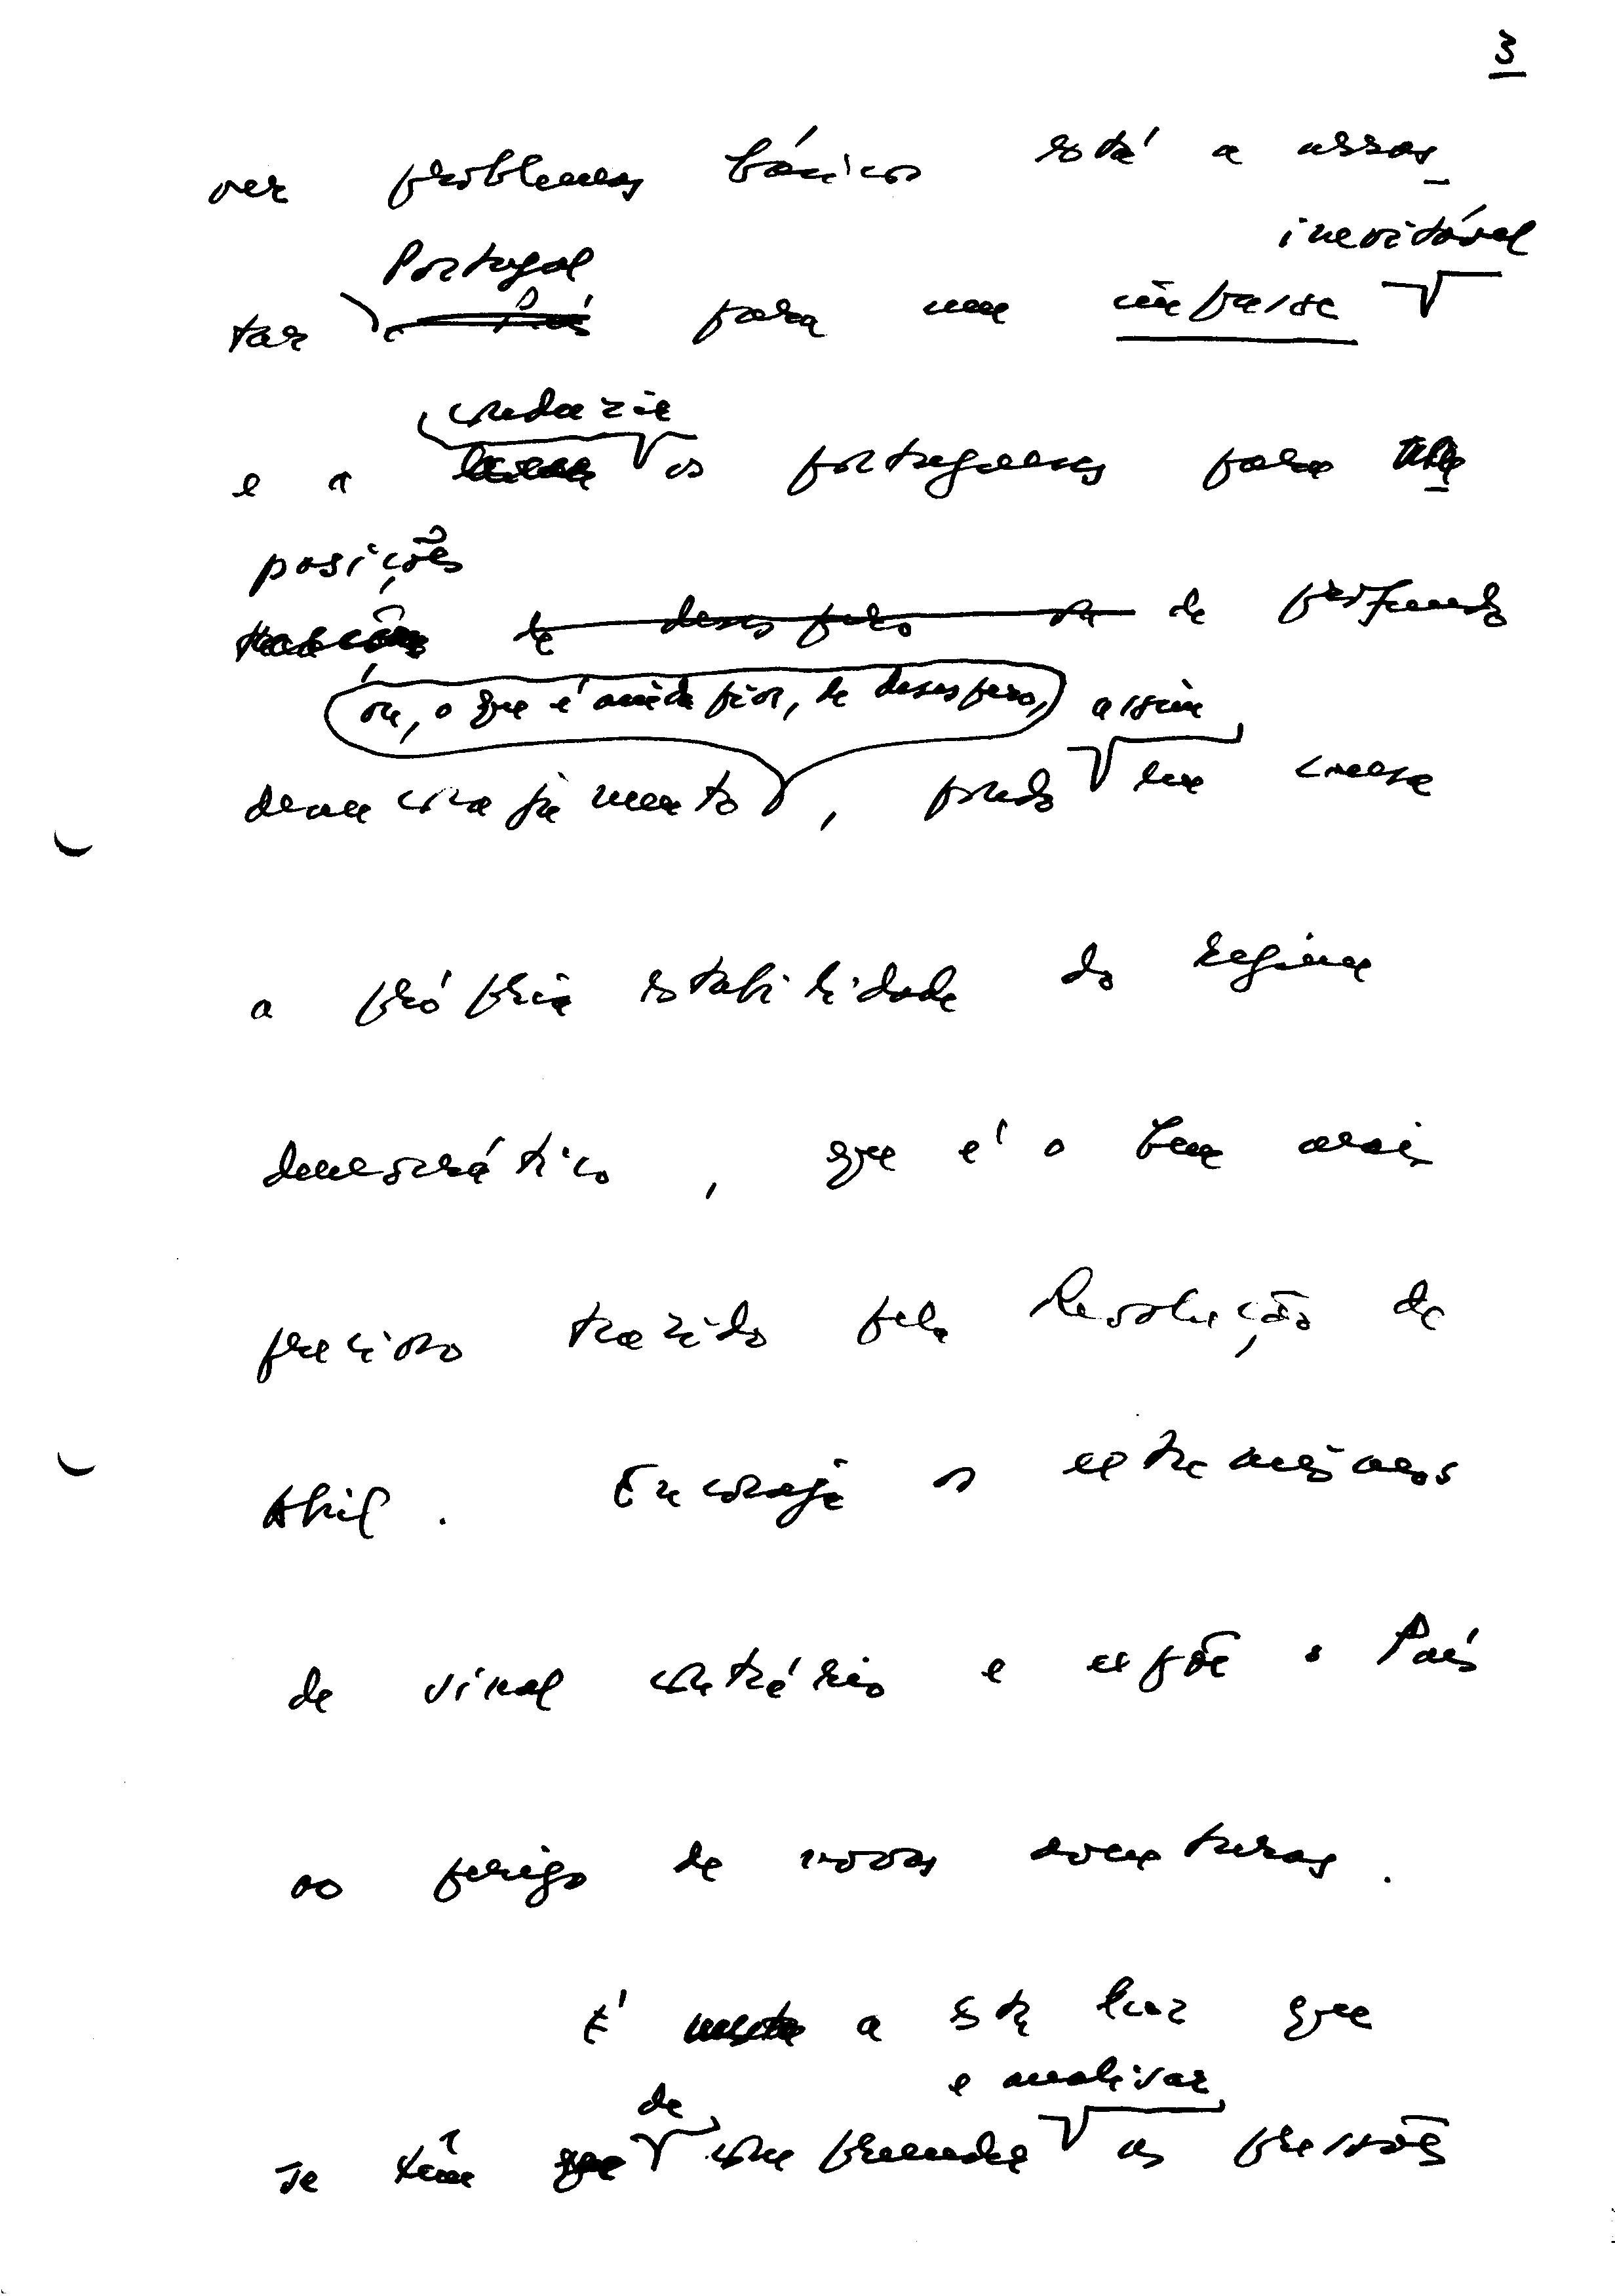 3
ver problemas básicos está a arras-
inevitável
Portugal
tar o País para um impasse
conduzir
e a levar os portugueses para
posições
de desespero ou de profundo
ou, o que é ainda pior, de desespero, assim
desencorajamento, pondo em causa
a própria estabilidade do regime
democrático, que é o bem mais
precioso trazido pela Revolução de
Abril. Encoraja os extremismos
de sinal contrário e expõe o País
ao perigo de novas aventuras.
É nesta a esta luz que
de e analisar
se têm que compreender as pressões